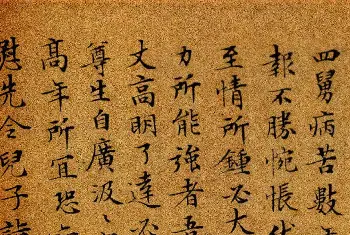 四舅病苦數
報不勝惋悵
至情所鍾必大
力所能強者吾
丈高明了達必
尊生自廣汲〻
高年所宜恐
慰先令兒子詣